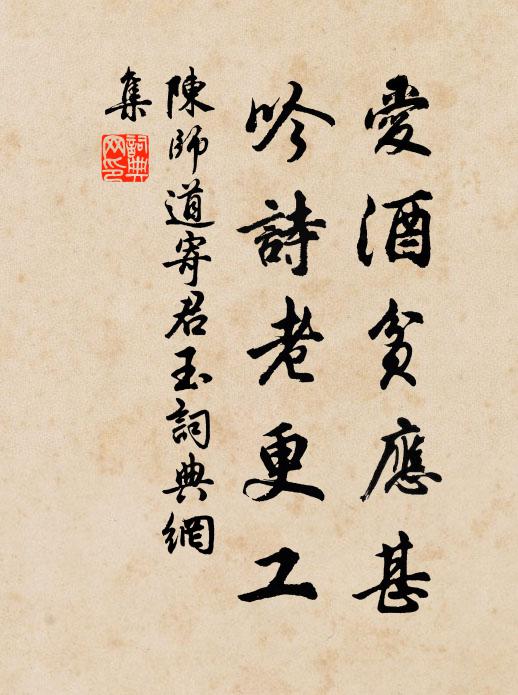 愛酒貧應甚
吟詩老更工
陳師道寄君玉詞典網
集
詞典
网印